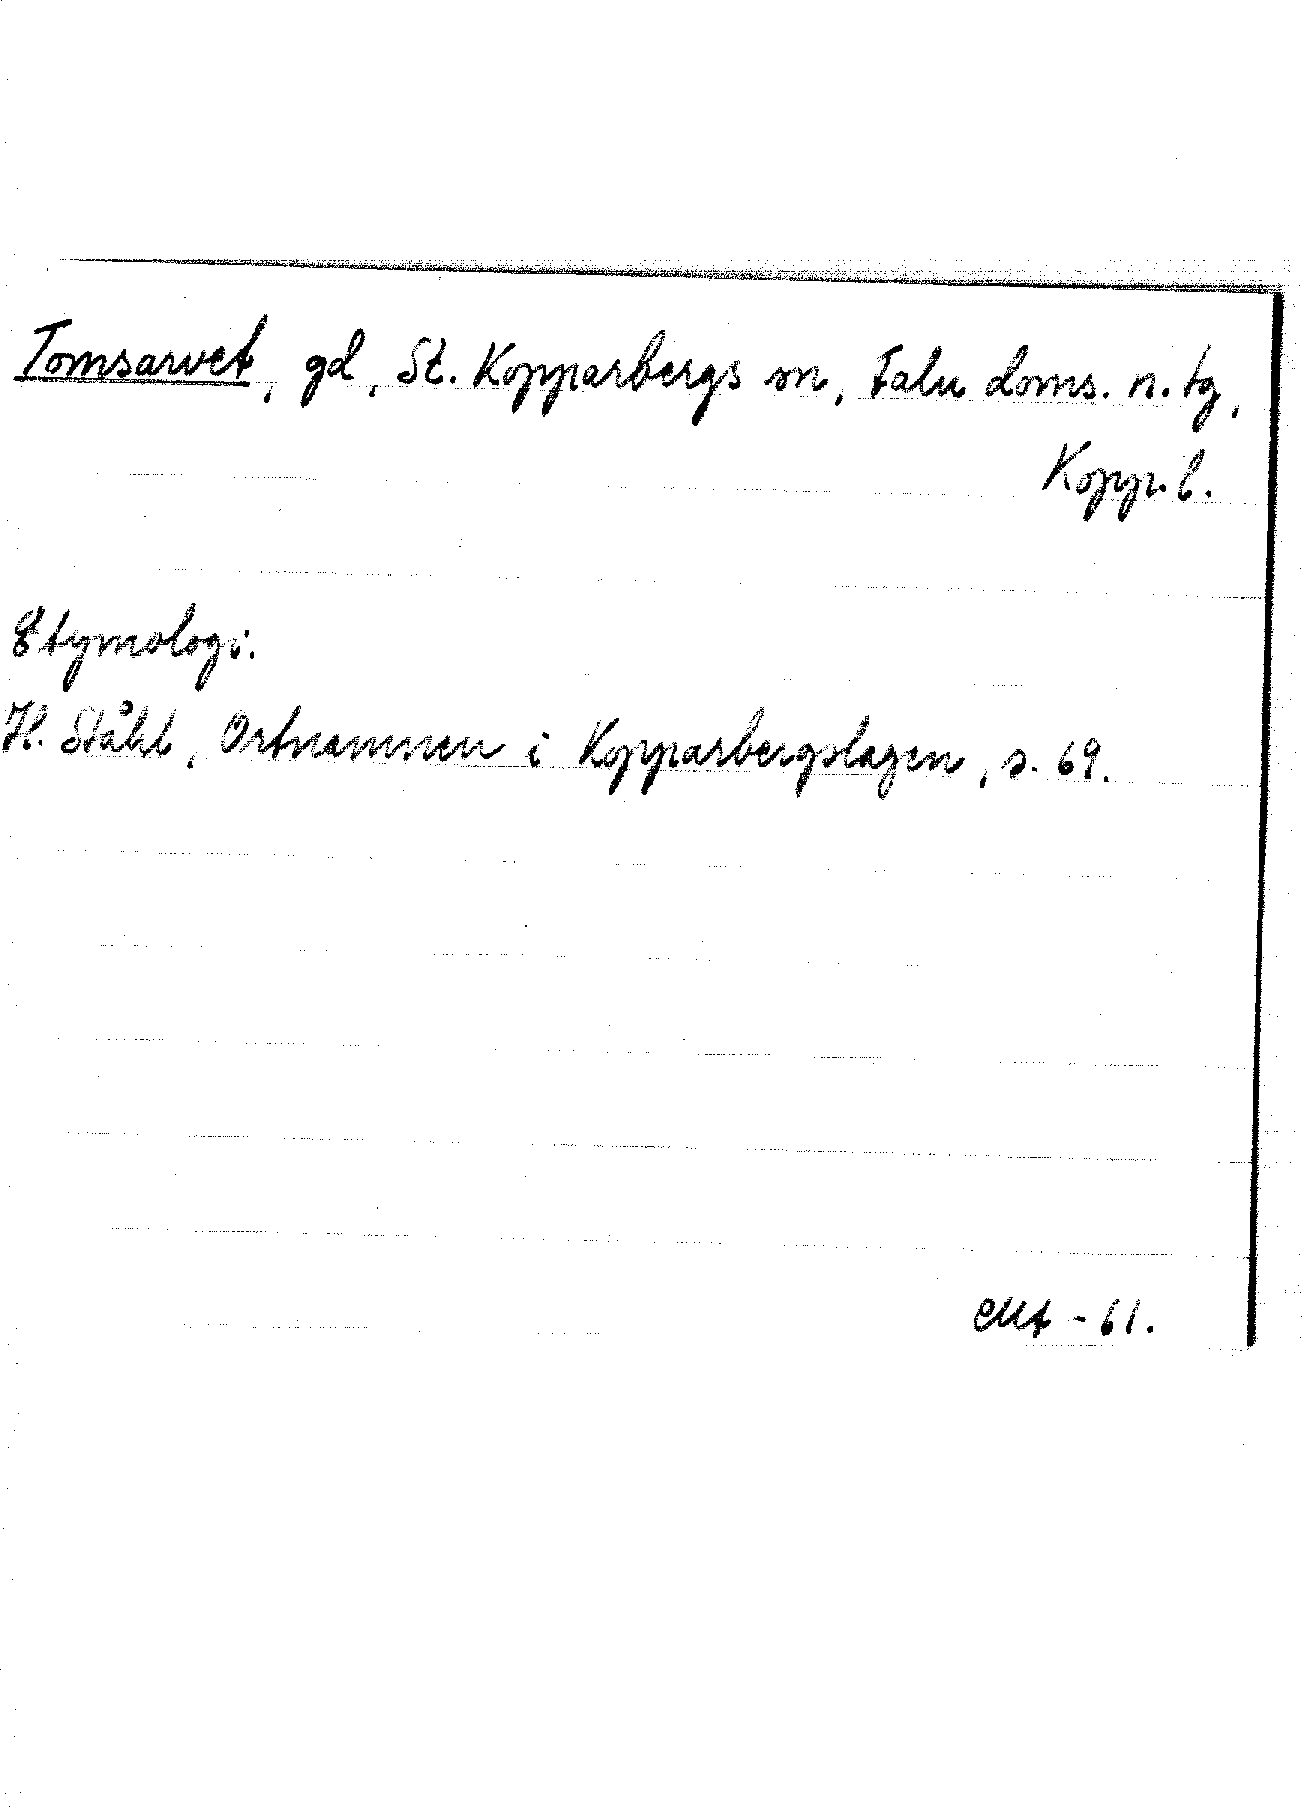 Tomsarvet, gd, St. Kopparbergs sn, Falu doms. n. tg,
Kopp. l.
Etymologi.
H. Ståhl, Ortnamnen i Kopparbergslagen, s. 69.
- 61.